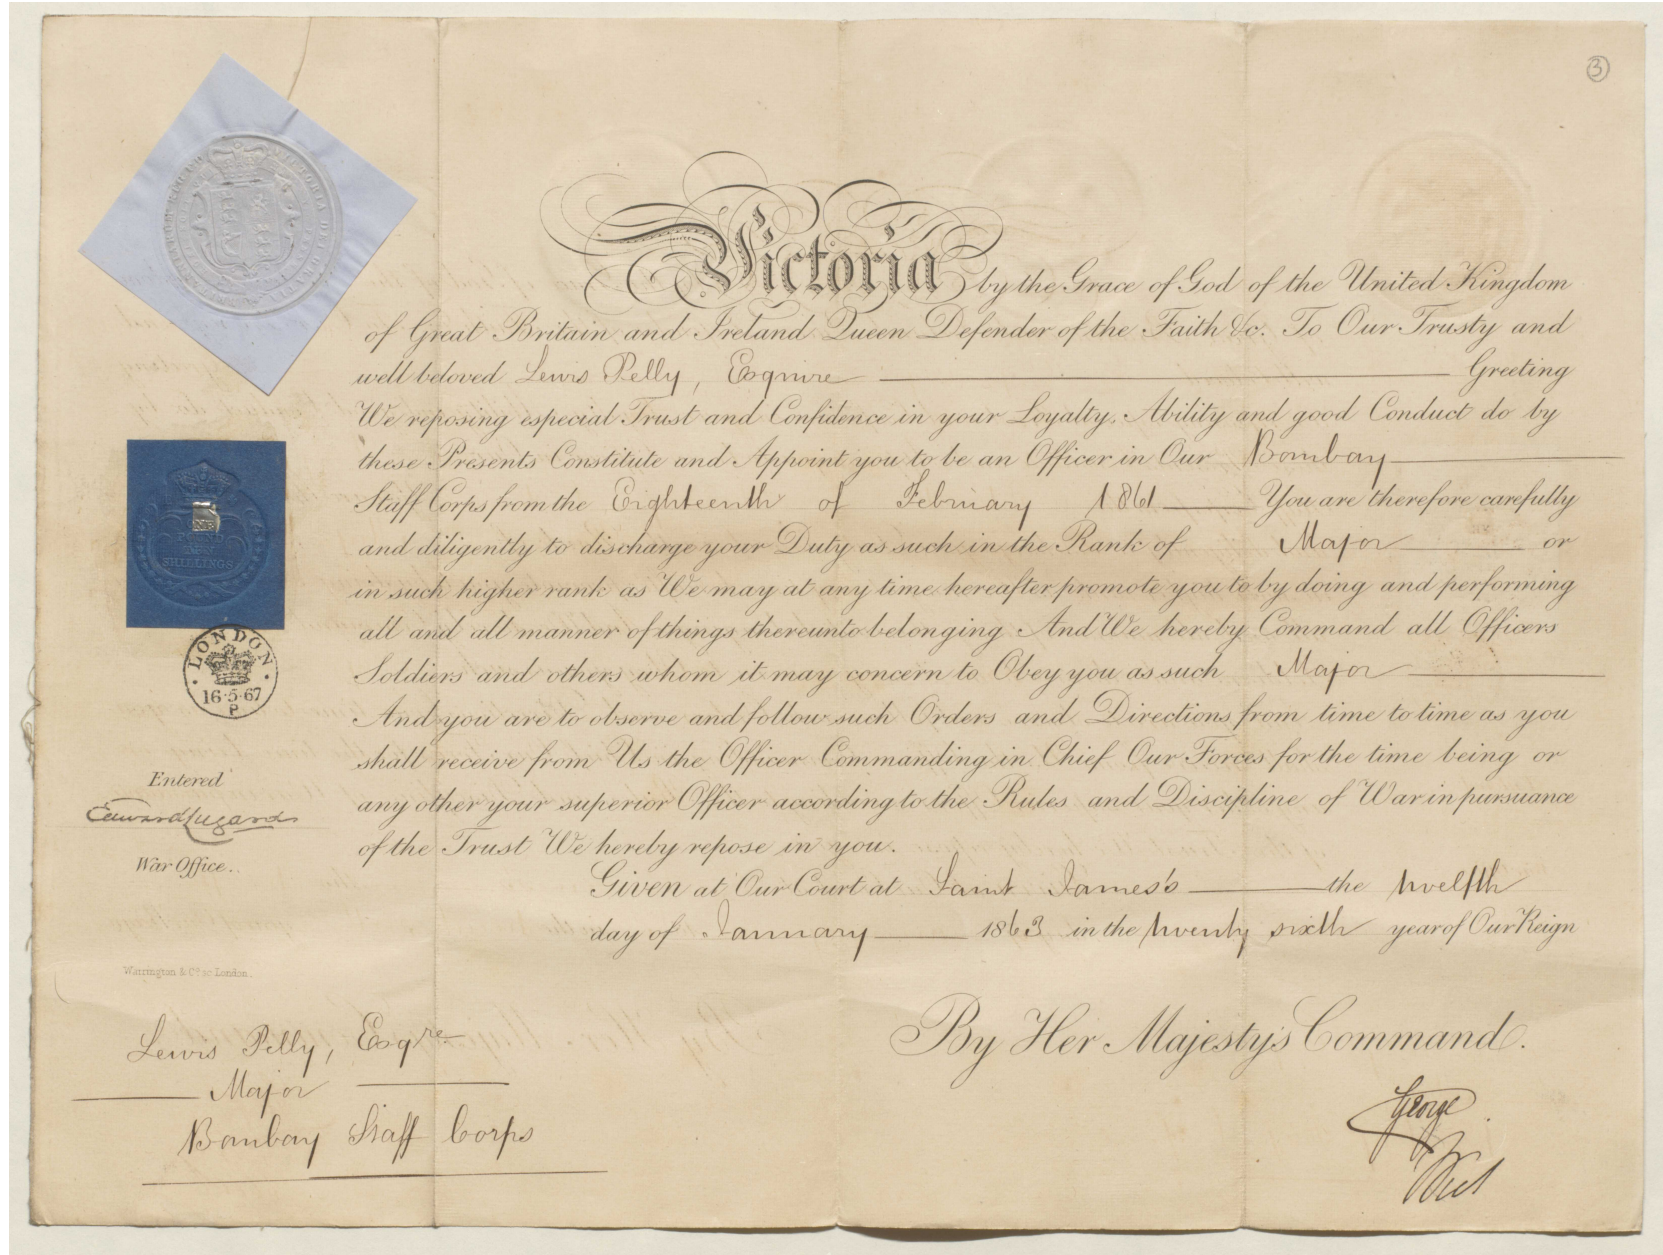 3
Victoria by the Grace of God of the United Kingdom
of Great Britain and Ireland Queen Defender of the Faith &c. To Our Trusty and
well beloved Lewis Pelly, Esquire Greeting
We reposing especial Trust and Confidence in your Loyalty, Ability and good Conduct do by
these Presents Constitute and Appoint you to be an Officer in Our Bombay
Staff Corps from the Eighteenth of February 1861 You are therefore carefully
and diligently to discharge your Duty as such in the Rank of Major or
in such higher rank as We may at any time hereafter promote you to by doing and performing
all and all manner of things thereunto belonging And We hereby Command all Officers
Soldiers and others whom it may concern to Obey you as such Major
And you are to observe and follow such Orders and Directions from time to time as you
shall receive from Us the Officer Commanding in Chief Our Forces for the time being or
any other your superior Officer according to the Rules and Discipline of War in pursuance
of the Trust We hereby repose in you.
Given at Our Court at Saint James's the twelfth
day of January 1863 in the twenty sixth year of Our Reign
By Her Majesty's Command.
George
POUND
TEN
SHILLINGS
LONDON
16·5·67
P
Entered
Edward Lugard
War Office.
Warrington & Co. sc London.
Lewis Pelly, Esqre
Major
Bombay Staff Corps